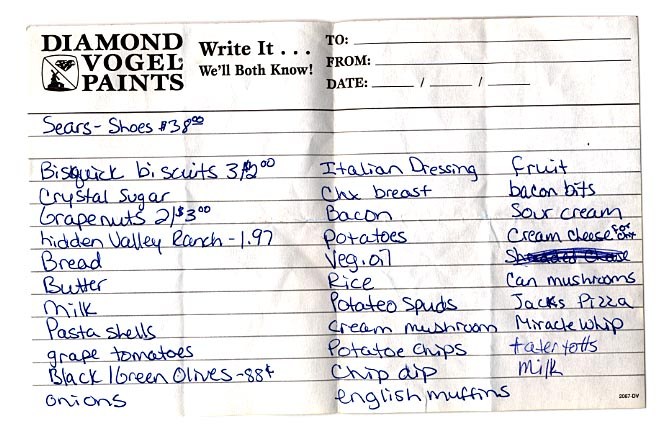 DIAMOND
VOGEL
PAINTS
Write It . . .
We'll Both Know!
TO:
FROM:
DATE: / /
Sears - Shoes $38.00
Bisquick biscuits 3/$2.00
Crystal Sugar
Grapenuts 2/$3.00
hidden Valley Ranch - 1.97
Bread
Butter
Milk
Pasta shells
grape tomatoes
Black / Green Olives - 88¢
onions
Italian Dressing
Chx breast
Bacon
Potatoes
Veg. oil
Rice
Potateo spuds
Cream mushroom
Potatoe chips
Chip dip
english muffins
fruit
bacon bits
Sour cream
Cream cheese for
Can mushrooms
Jacks Pizza
Miracle whip
tater totts
milk
2067-DV